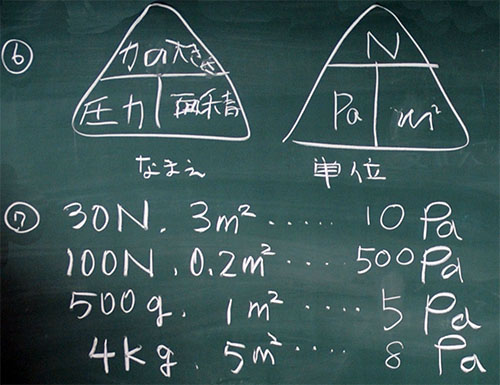 ⑥
力の大きさ
圧力 面積
なまえ
N
Pa m²
単位
⑦ 30N. 3m² ····· 10 Pa
100N. 0.2m² ···· 500 Pa
500g. 1m² ···· 5 Pa
4kg. 5m² ···· 8 Pa